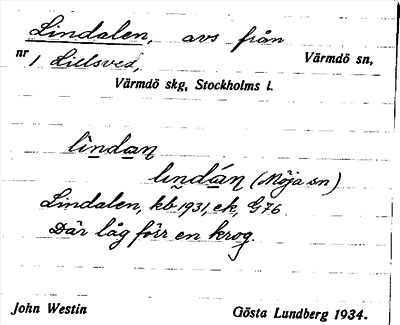 Lindalen, avs från
nr 1 Lillsved, Värmdö sn,
Värmdö skg, Stockholms l.
lìndan
lindán (Möja sn)
Lindalen, kb 1931, ek, G76
Där låg förr en krog.
John Westin Gösta Lundberg 1934.